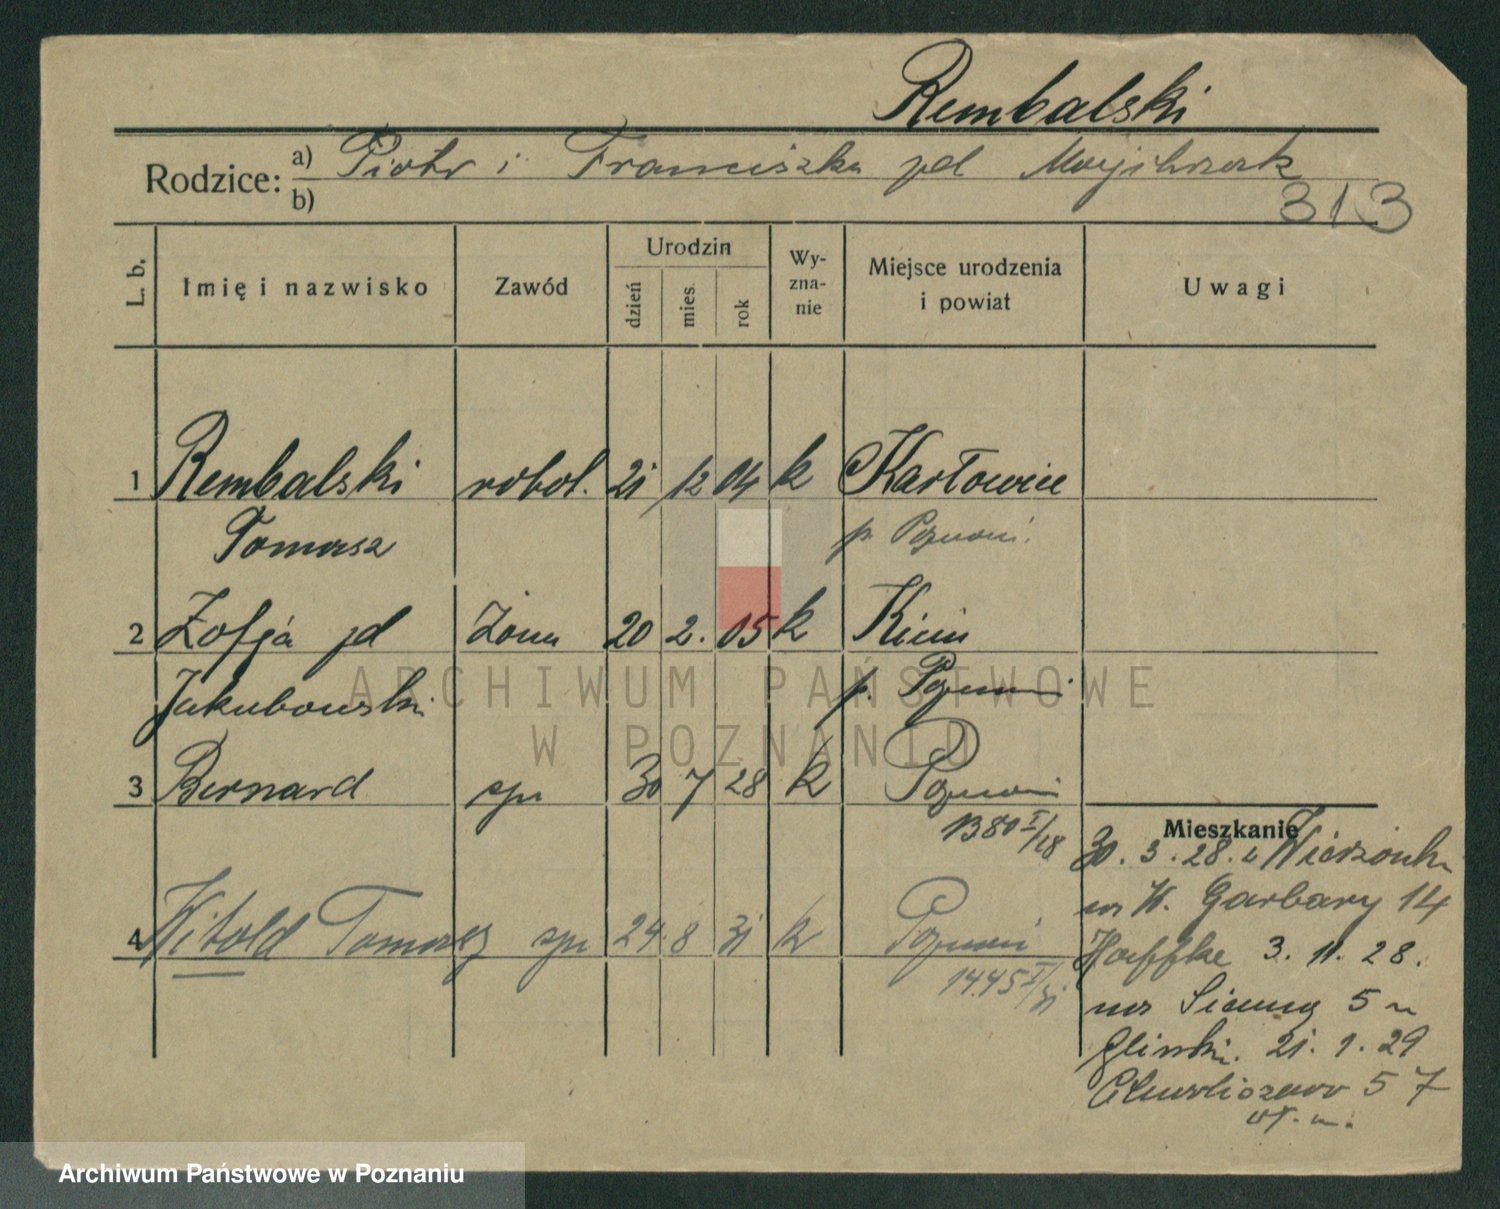 Rembalski
Rodzice: a) Piotr i Franciszka zd
b)
313
L. b.
Imię i nazwisko
Zawód
Urodzin
dzień
mies.
rok
Wy-
zna-
nie
Miejsce urodzenia
i powiat
Uwagi
1 Rembalski robot. 21 12 04 k Karłowice
Tomasz p. Poznań.
2 Zofja zd żona 20 2. 05 k Kicin
Jakubowski p. Poznań
3 Bernard syn 30 7 28 k Poznań
1380 I/28
Mieszkanie
30. 3. 28. z Wierzonki
na W. Garbary 14
Hoeffke 3. 11. 28.
na 5 u
Glinski. 21. 1. 29
Chwaliszewo 57
wł. m.
4 Witold Tomasz syn 24 8 31 k Poznań
1445 I/31
ARCHIWUM PAŃSTWOWE
W POZNANIU
Archiwum Państwowe w Poznaniu